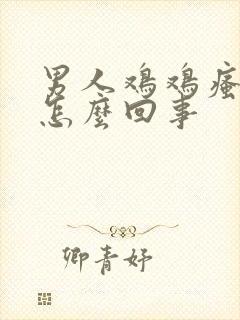 男人鸡鸡瘙
怎麼回事
卿青妤